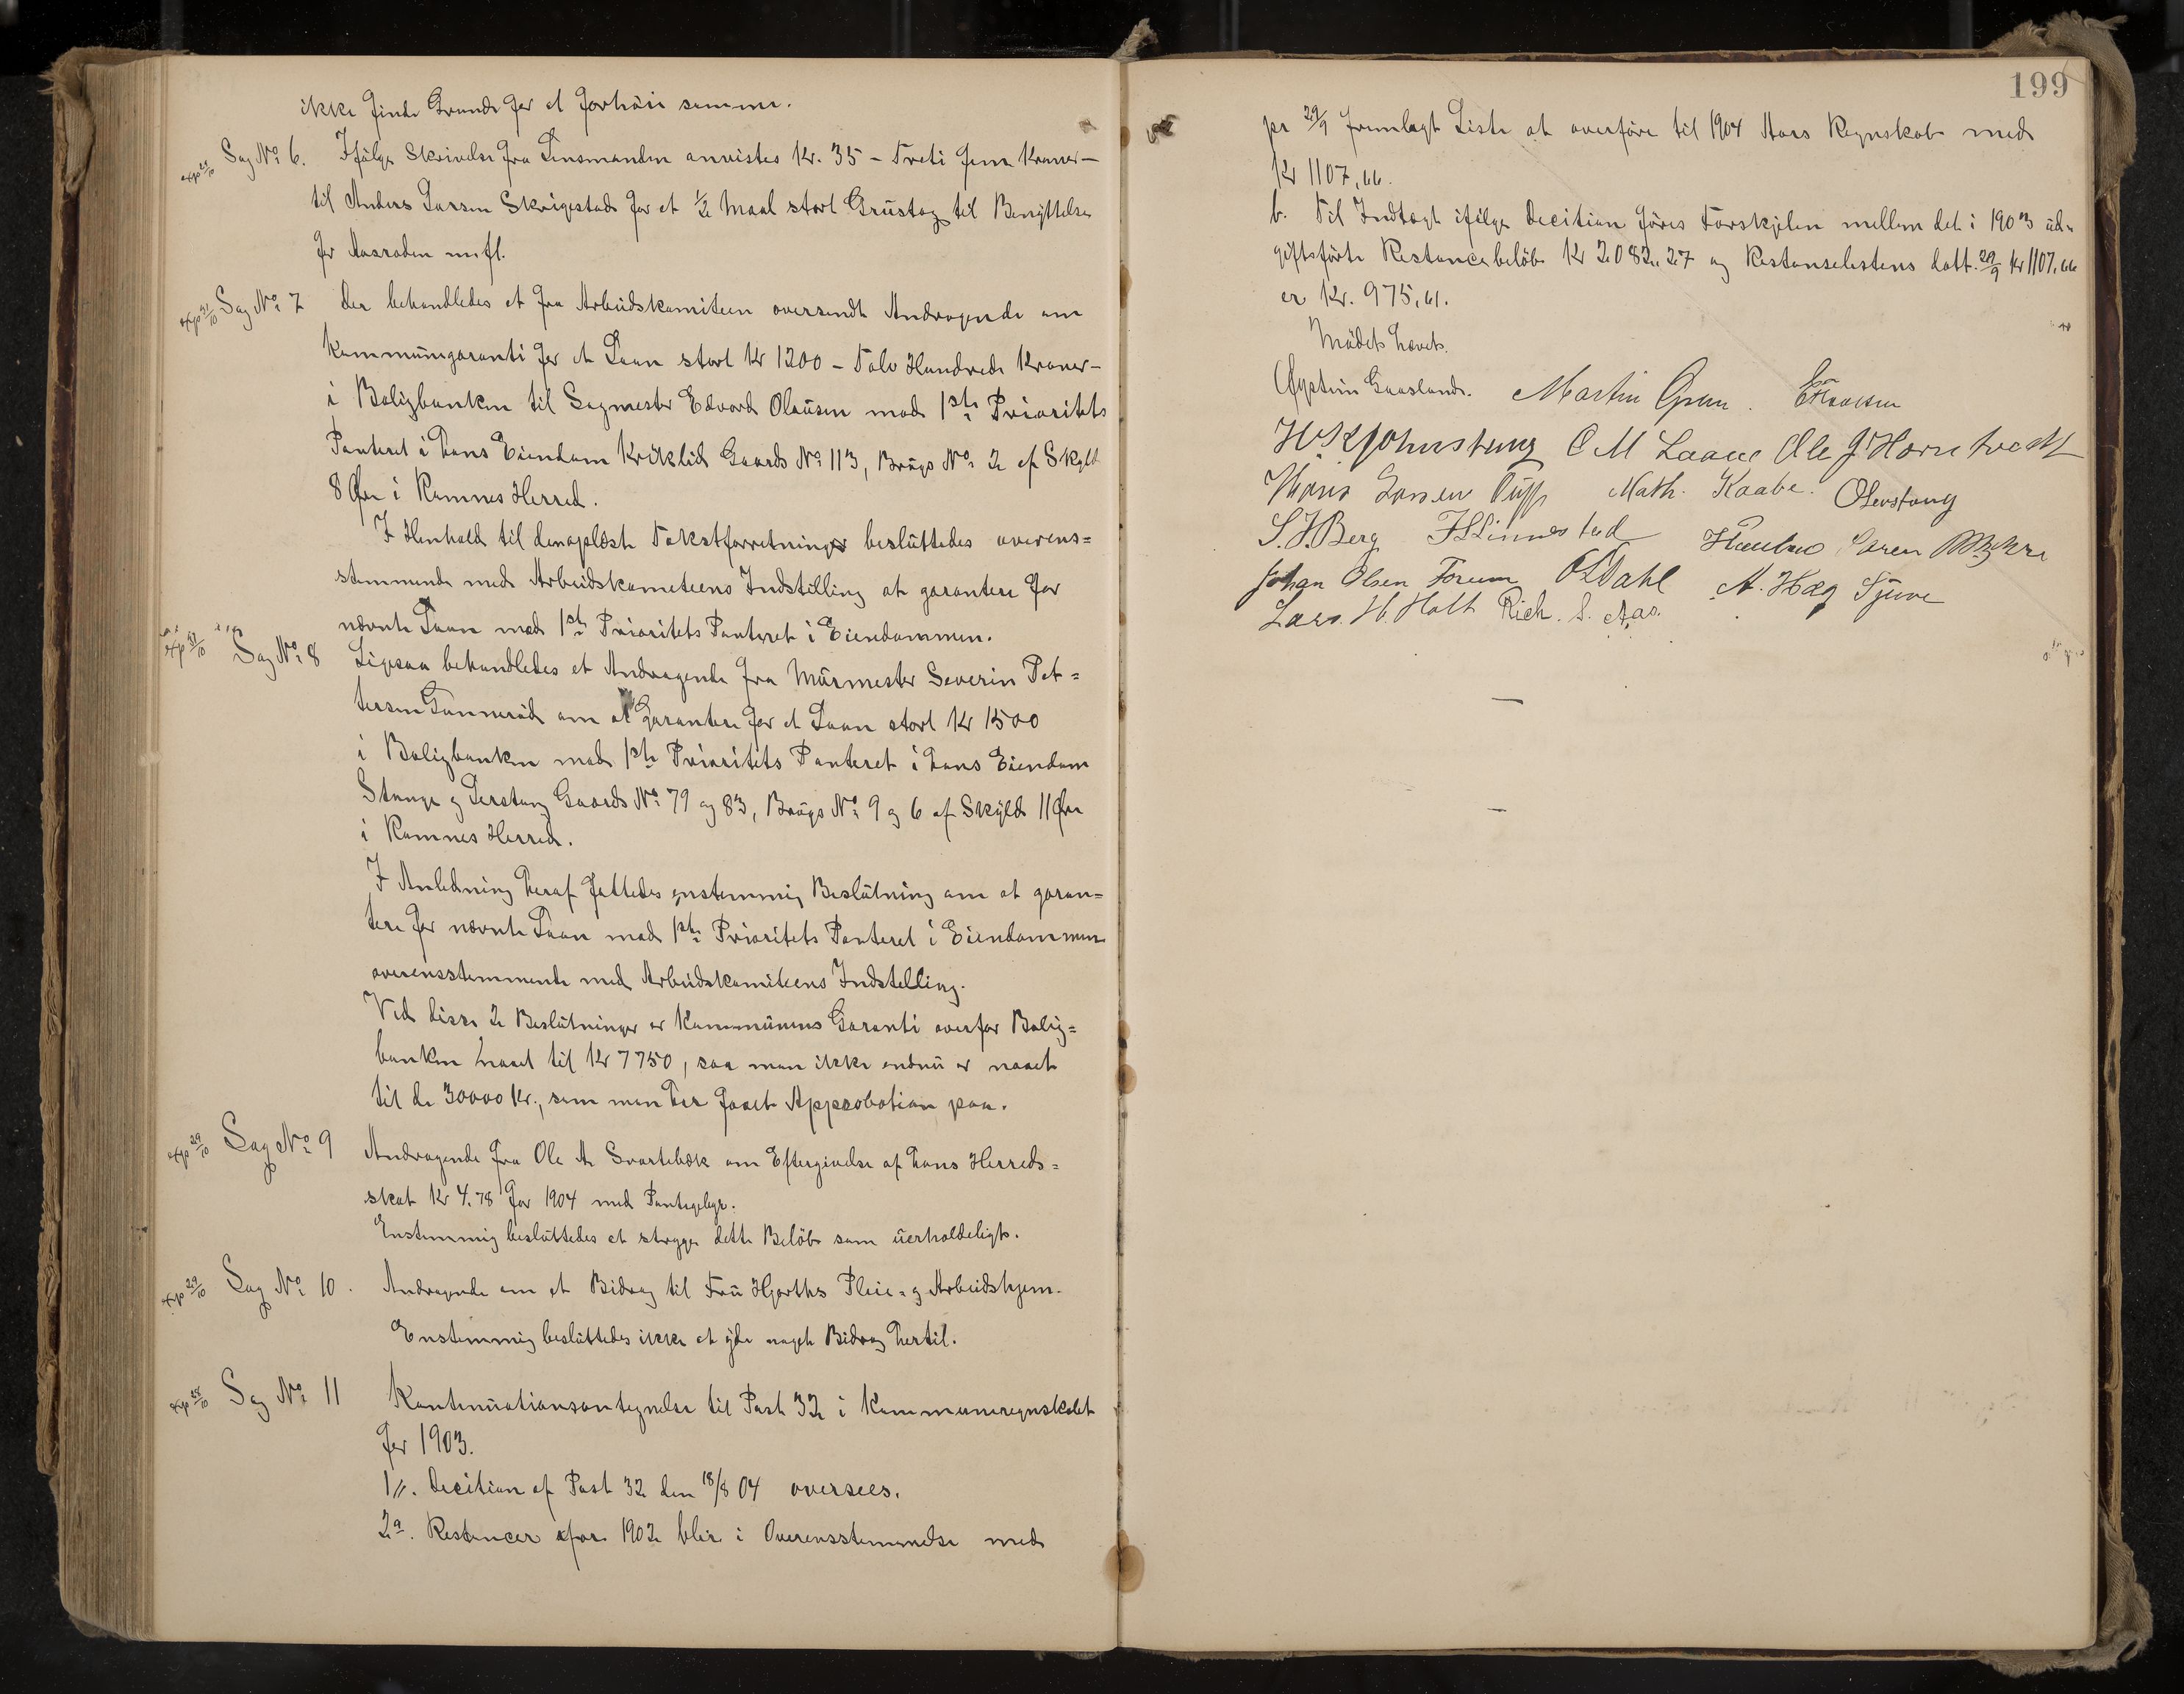 ikke finde Grunde for at forhöie samme.
exp 29/10 Sag No 6. Ifölge Skrivelse fra Lensmanden anvistes Kr. 35 – Treti fem Kroner –
til Anders Larsen Skrigestad for et 1/2 Maal stort Grustag til Benyttelse
for Aasroden m.fl.
exp 31/10 Sag No 7 Der behandledes et fra Arbeidskomiteen oversendt Andragende om
Kommunegaranti for et Laan stort Kr 1200 – Tolv Hundrede Kroner –
i Boligbanken til Sagmester Edvard Olausen mod 1ste Prioritets
Panteret i hans Eiendom Kröklid Gaards No 113, Brugs No 2 af Skyld
8 Öre i Ramnes Herred.
I Henhold til den oplæste Takstforretning besluttedes overens=
stemmende med Arbeidskomiteens Indstilling at garantere for
nævnte Laan mod 1ste Prioritets Panteret i Eiendommen.
exp 31/10 Sag No 8 Ligesaa behandledes et Andragende fra Murmester Severin Pet=
tersen Gunneröd om at Garantere for et Laan stort Kr 1500
i Boligbanken mod 1ste Prioritets Panteret i hans Eiendom
Stange og Gerstang Gaards No 79 og 83, Brugs No 9 og 6 af Skyld 11 Öre
i Ramnes Herred.
I Anledning heraf fattedes enstemmig Beslutning om at garan=
tere for nævnte Laan mod 1ste Prioritets Panteret i Eiendommen
overensstemmende med Arbeidskomiteens Indstelling.
Ved disse 2 Beslutninger er Kommunens Garanti overfor Bolig=
banken naaet til Kr 7750, saa man ikke endnu er naaet
til de 30000 Kr., som man har faaet Approbation paa.
exp 29/10 Sag No 9 Andragende fra Ole A. Svartebæk om Eftergivelse af hans Herreds=
skat Kr 4.78 for 1904 med Pantegebyr.
Enstemmig besluttedes at stryge dette Belöb som uerholdeligt.
exp 29/10 Sag No 10. Andragende om et Bidrag til Fru Hjorths Pleie- og Arbeidshjem.
Enstemmig besluttedes ikke at yde noget Bidrag hertil.
exp 28/10 Sag No 11 Kontinuationsantegnelse til Post 32 i Kommuneregnskabet
for 1903.
1//. Decition af Post 32 den 18/8 04 oversees.
2a. Restancer for 1902 blir i Overensstemmelse med
199
pr 29/9 fremlagt Liste at overföre til 1904 Aars Regnskab med
Kr 1107,66.
b. Til Indtægt ifölge Decition föres Forskjelen mellem det i 1903 ud=
giftsförte Restancebelöb Kr 2082,27 og Restanselistens datt. 29/9 Kr 1107,66
er Kr. 975,61.
Mödet hævet.
Öystein Gaasland. Martin Gren.
H. Kjohnstang C M Laane Ole J. Hornetvedt
Hans Larsen Math. Kaabe. Olerstang
S. J. Berg F S Linnestad Soren
Johan Olsen Forum O L Dahl A. Hæg Tjuve
Lars. H. Holt Rich. S. Aas.